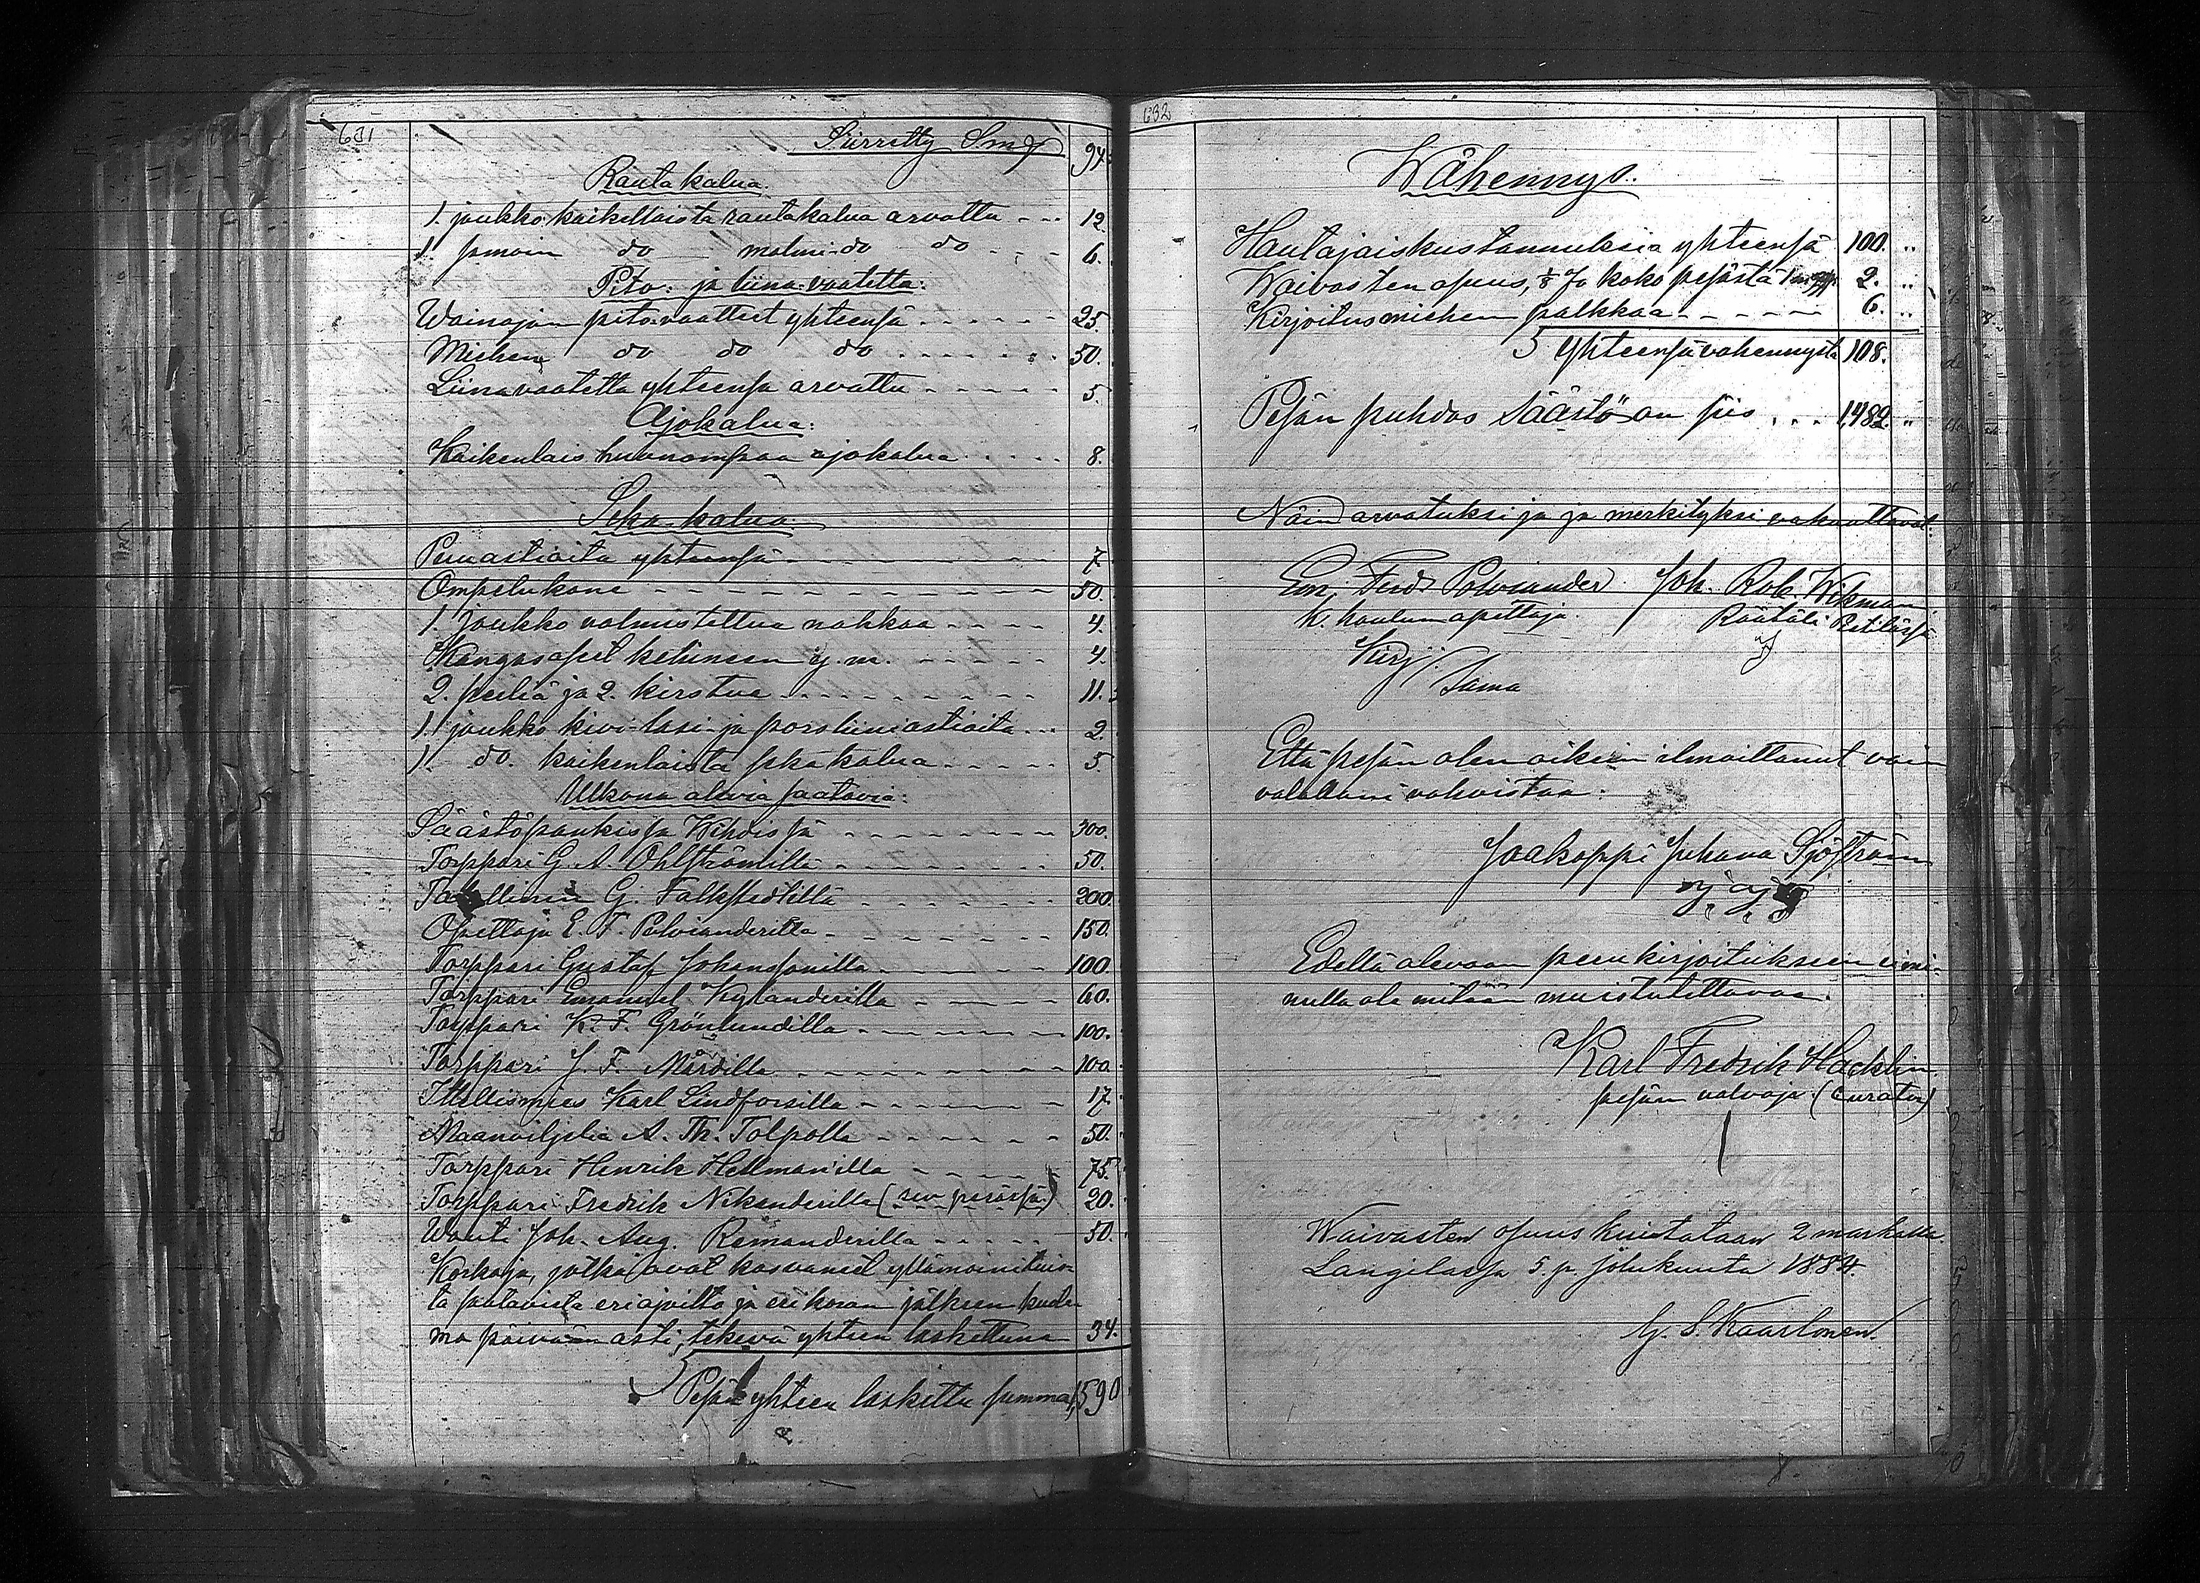 631
Siirretty Smf 94.
Rautakalua.
1. joukko kaikellaista rautakalua arvattu - - - 12
1. samoin do malmi do do - - - 6.
Pito- ja liina-vaatetta:
Wainajan pitovaatteet yhteensä - - - - - - 25.
Miehen do do do - - - - - - 50.
Liinavaatetta yhteensä arvattu - - - - 5.
Ajokalua:
Kaikenlais huonompaa ajokalua - - - - - 8.
Seka-kalua.
Puuastioita yhteensä - - - - - - - - 7.
Ompelukone - - - - - - - - - - - 50.
1. Joukko valmistettua nahkaa - - - - 4.
Kangasaset keluneen y. m. - - - - - - 4.
2. peiliä ja 2. kirstua - - - - - - - - 11.
1. joukko kivi-lasi- ja porsliiniastioita - - - 2.
1. do. kaikenlaista sekakalua - - - - - 5.
Ulkona olevia saatavia:
Säästöpankissa Wihdissä - - - - - - - 300.
Torppari G. A. Ohlströmilla - - - - - - 50.
G. Falkstedtillä - - - - - - 200.
Opettaja E. F. Polvianderilla - - - - - - 150.
Torppari Gustaf Johanssonilla - - - - - 100.
Torppari Emanuel Kylanderilla - - - - - 60.
Torppari K. F. Grönlundilla - - - - - - 100.
Torppari J. F. Mårdilla - - - - - - - 100.
Itsellismies Karl Lindforsilla - - - - - - 17.
Maanviljeliä A. Th. Tolpolla - - - - - - 50.
Torppari Henrik Hellman'illa - - - - - 75.
Torppari Fredrik Nikanderilla (sen perässä) 20.
Wouti Joh. Aug. Remanderilla - - - - - 50.
Korkoja, jotka ovat kasvaneet yllämainituis-
ta saatavista eriajoilta ja eri koron jälkeen kuole-
ma päivään asti, tekevä yhteen laskettuna 34.
Pesän yhteen laskettu summa 1,590
632
Wähennys.
Hautajaiskustannuksia yhteensä 100. "
Waivasten apuus, 1/8 % koko pesästä 2. "
Kirjoitusmiehen palkkaa - - - - - 6. "
yhteensä vähennystä 108.
Pesän puhdas säästö on siis . . . 1,482. "
Näin arvatuksi ja ja merkityksi vakuuttavat
Em. Ferd. Polviander. Joh. Rob. Wikman,
k. koulun opettaja. Räätäli Retilässä
Kirj.
Sama
Että pesän olen oikein ilmoittanut voin
valallani vahvistaa:
Jaakoppi Juhana Sjöström
Edellä olevaan perukirjoitukseen ei mi-
nulla ole mitään muistutettavaa.
Karl Fredrik Hacklin
pesän valvoja (curator)
Waivasten apuus kuistataan 2 markalla
Langilassa 5 p. joulukuuta 1884.
G. S. Kaarlonen.